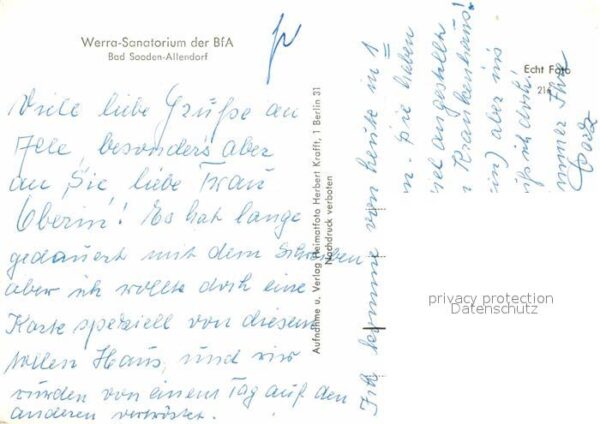 Werra-Sanatorium der BfA
Bad Sooden-Allendorf
Viele liebe Grüße an
Alle, besonders aber
an Sie, liebe Frau
Oberin! Es hat lange
gedauert mit dem Schreiben
aber ich wollte doch eine
Karte speziell von diesem
tollen Haus, und wir
wurden von einem Tag auf den
anderen vertröstet.
Aufnahme u. Verlag Heimatfoto Herbert Krafft, 1 Berlin 31
Nachdruck verboten
Ich komme von heute in 1
Die lieben
angestellt
Krankenhaus!
aber ins
ich doch!
immer Ihre
Echt Foto
21
privacy protection
Datenschutz